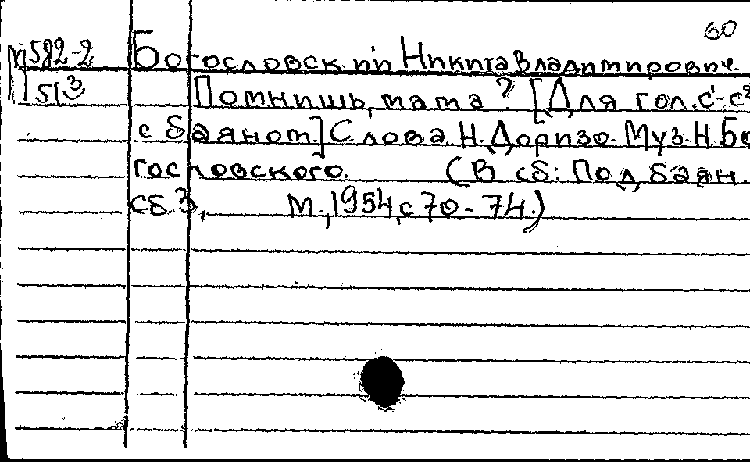 60
М592-2 Богословский Никита Владимирович
513 Помнишь, мама? [Для гол. с¹-
с баяном] Слова Н. Доризо. Муз. Н. Бо
гословского. (В сб: Под баян.
сб 3, М., 1954, с 70-74.)